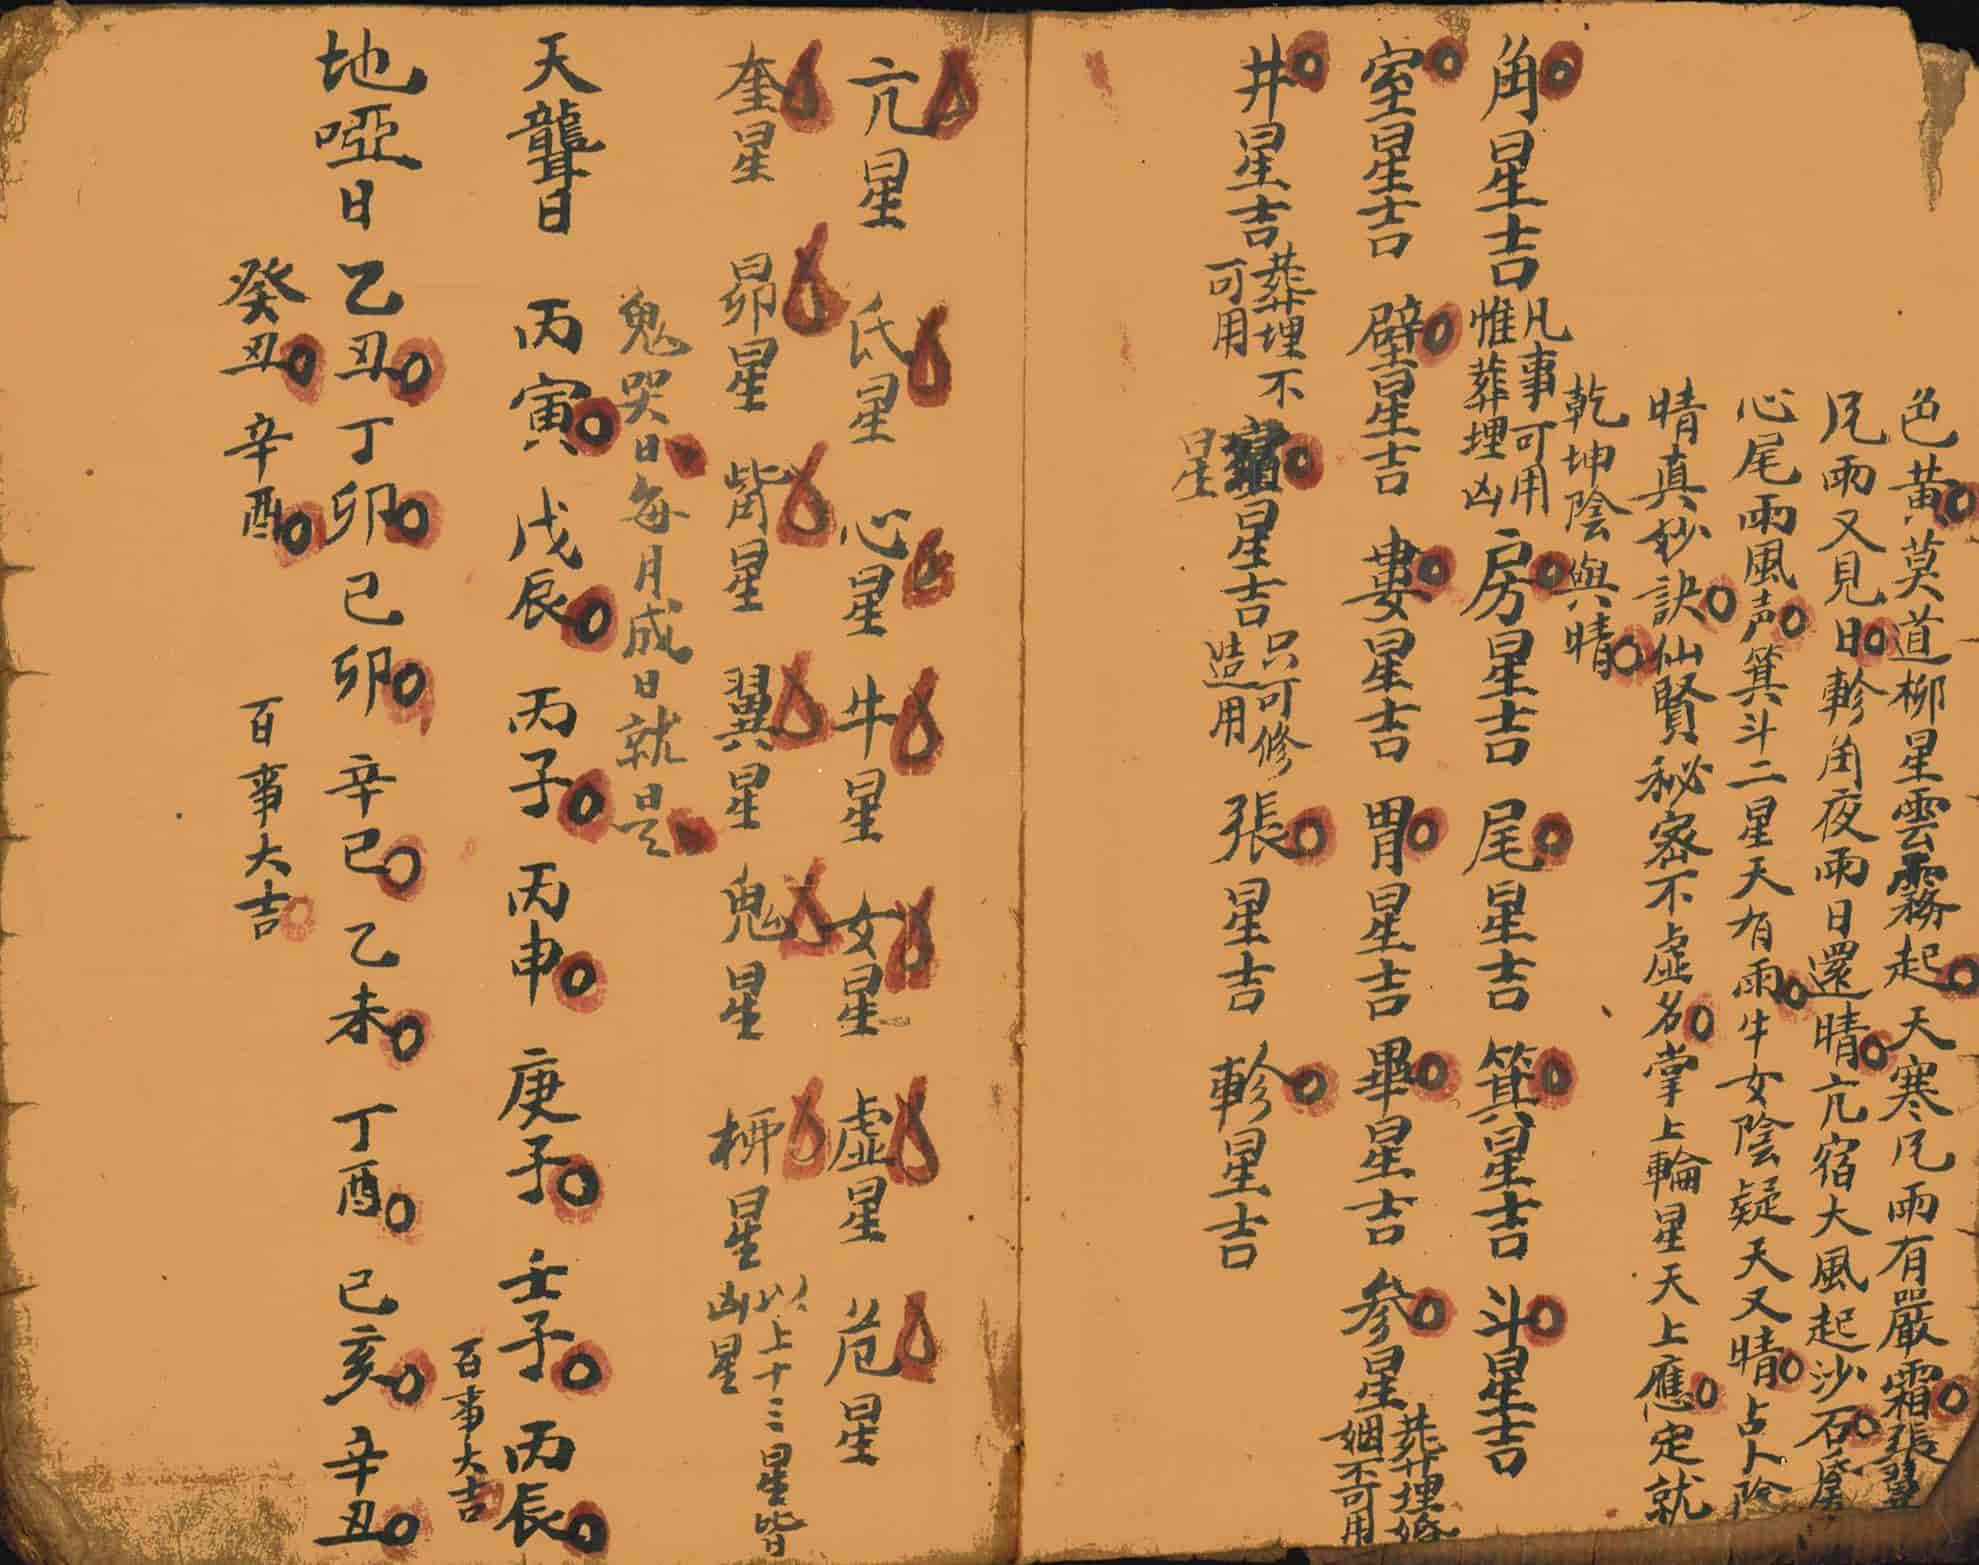 色黃莫道柳星雲霧起天寒凡雨有嚴霜張翼
凡雨又見日軫角夜雨日還晴亢宿大風起沙石房
心尾雨風声箕斗二星天有雨牛女陰疑天又晴占卜陰
晴真妙訣仙賢秘密不虛名掌上輪星天上應定就
乾坤陰與晴
角星吉 凡事可用惟葬埋凶 房星吉 尾星吉 箕星吉 斗星吉
室星吉 壁星吉 婁星吉 胃星吉 畢星吉 參星 葬埋婚姻不可用
井星吉 葬埋不可用 星星吉 只可修造用 張星吉 軫星吉
亢星 氐星 心星 牛星 女星 虛星 危星
奎星 昴星 觜星 翼星 鬼星 柳星 以上十三星皆凶星
鬼哭日每月成日就是
天聾日 丙寅 戊辰 丙子 丙申 庚子 壬子 丙辰 百事大吉
地啞日 乙丑 丁卯 己卯 辛巳 乙未 丁酉 己亥 辛丑
癸丑 辛酉 百事大吉